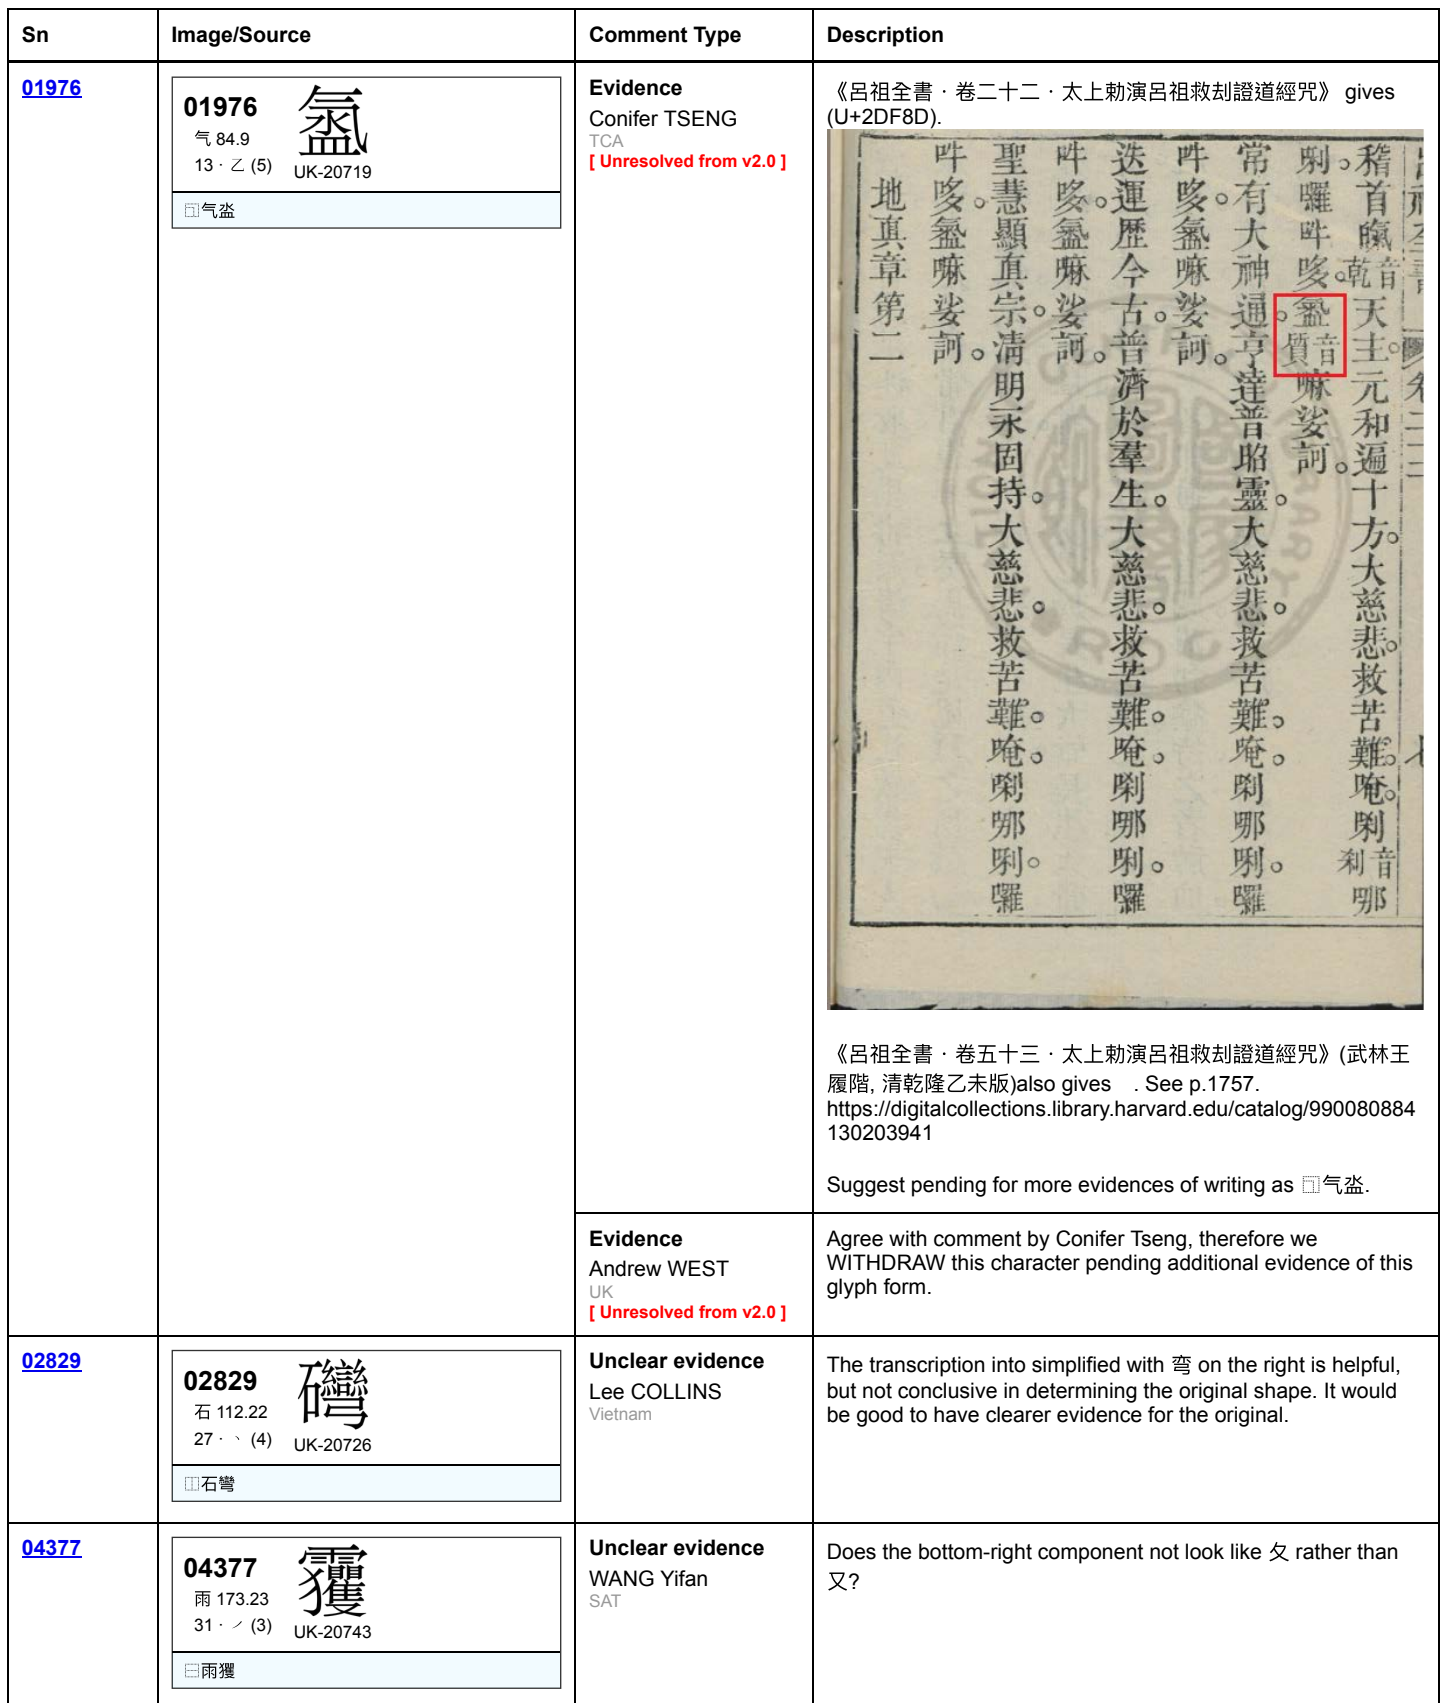 Sn Image/Source Comment Type Description
01976
01976
气 84.9
13 · 乙 (5)
UK-20719
⿹气
Evidence
Conifer TSENG
TCA
[ Unresolved from v2.0 ]
《呂祖全書 · 卷二十二 · 太上勅演呂祖救刦證道經咒》 gives
(U+2DF8D).
稽首 音乾 天主。元和遍十方。大慈悲。救苦難。唵。唎 音剎 哪
唎。囉吽哆。 音質 嘛娑訶。
常有大神通。亨達普昭靈。大慈悲。救苦難。唵。唎哪唎。囉
吽哆。 嘛娑訶。
迭運歷今古。普濟於羣生。大慈悲。救苦難。唵。唎哪唎。囉
吽哆。 嘛娑訶。
聖慧顯真宗。淸明永固持。大慈悲。救苦難。唵。唎哪唎。囉
吽哆。 嘛娑訶。
地真章第二
《呂祖全書 · 卷五十三 · 太上勅演呂祖救刦證道經咒》(武林王
履階, 清乾隆乙未版)also gives . See p.1757.
https://digitalcollections.library.harvard.edu/catalog/990080884
130203941
Suggest pending for more evidences of writing as ⿹气.
Evidence
Andrew WEST
UK
[ Unresolved from v2.0 ]
Agree with comment by Conifer Tseng, therefore we
WITHDRAW this character pending additional evidence of this
glyph form.
02829
02829
石 112.22
27 · 丶 (4)
UK-20726
⿰石彎
Unclear evidence
Lee COLLINS
Vietnam
The transcription into simplified with 弯 on the right is helpful,
but not conclusive in determining the original shape. It would
be good to have clearer evidence for the original.
04377
04377
雨 173.23
31 · ㇒ (3)
UK-20743
⿱雨玃
Unclear evidence
WANG Yifan
SAT
Does the bottom-right component not look like 夂 rather than
又?